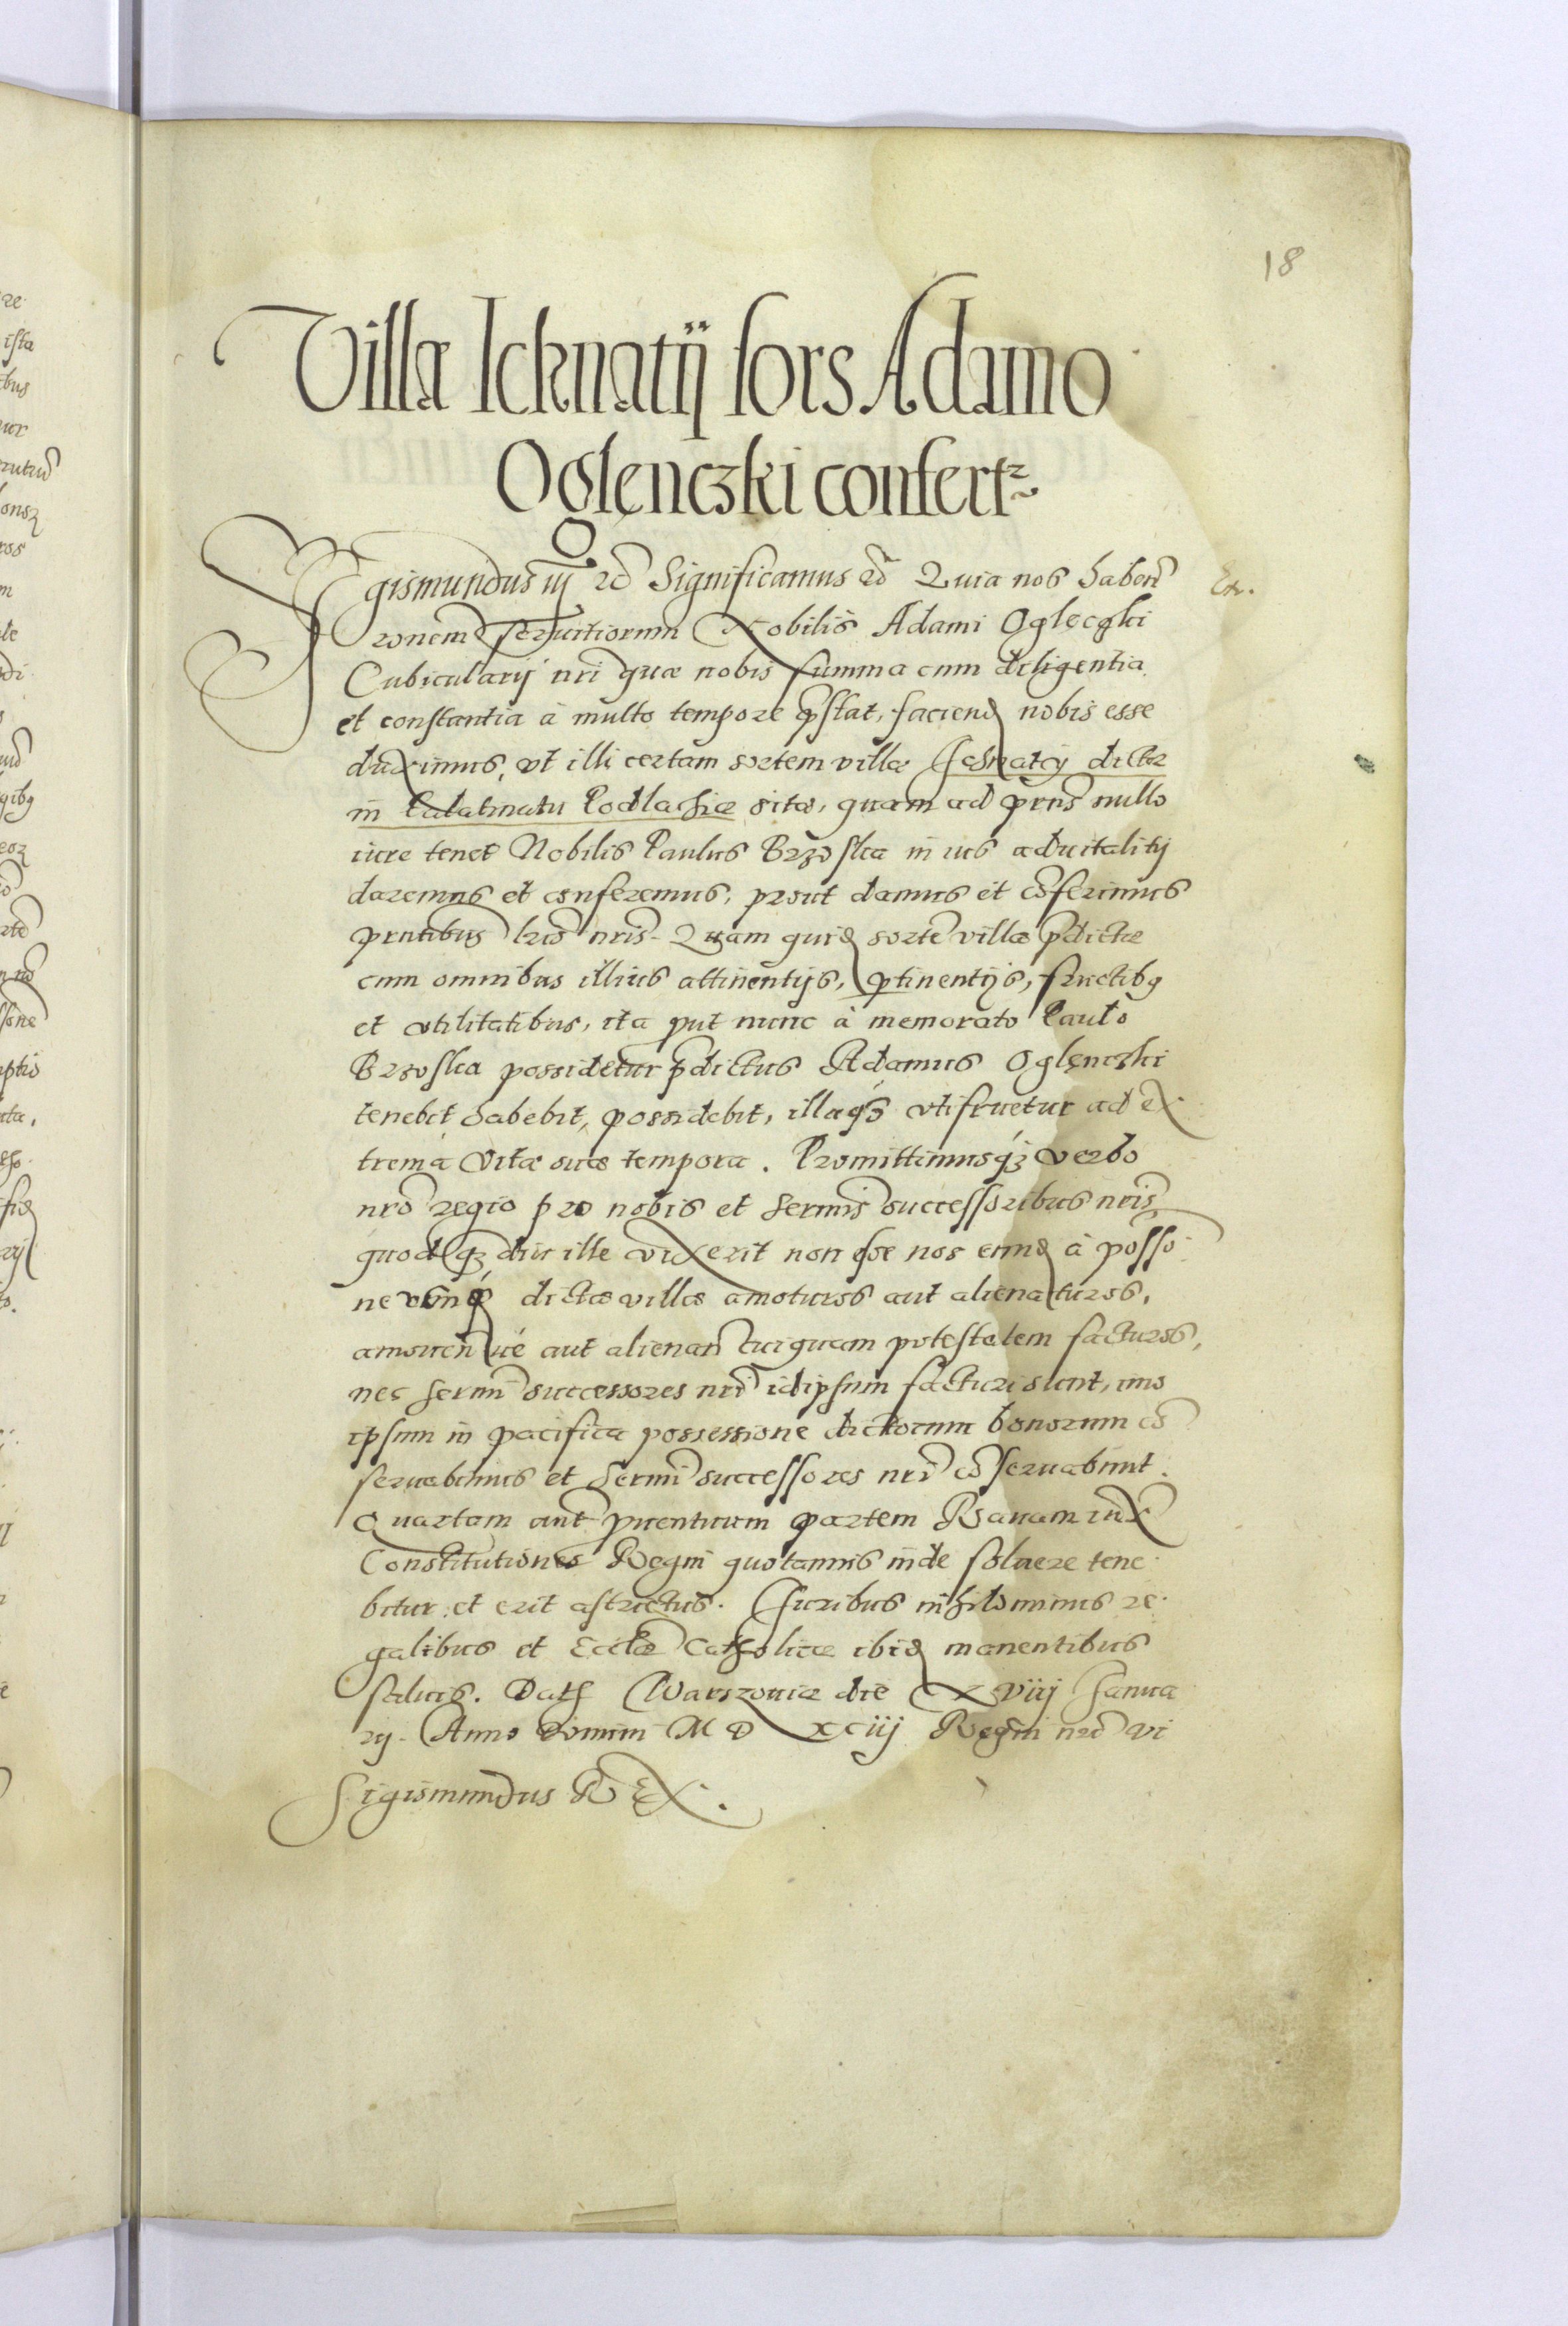 18
Villæ Icknatij sors Adamo
Oglenczki confertr
Sigismundus iij etc Significamus etc Quia nos haben
ronem seruitiorum Nobilis Adami Oglęczki
Etr.
Cubicularij nri quæ nobis summa cum diligentia
et constantia à multo tempore præstat, faciend nobis esse
duximus, vt illi certam sortem villæ Icknatij dictæ
in Palatinatu Podlachiæ sitæ, quam ad præns nullo
iure tenet Nobilis Paulus Brzoska in ius aduitalitij
daremus et conferemus, prout damus et coferimus
prntibus lris nris. Quam quid sorte villæ prædictæ
cum omnibus illius attinentijs, ptinentijs, fructibq
et vtilitatibus, ita put nunc à memorato Paulo
Brzoska possidetur prædictus Adamus Oglęnczki
tenebit habebit, possidebit, illaqz vtifruetur ad ex
trema vitæ suæ tempora. Promittimusqz verbo
nro regio pro nobis et Sermis successoribus nris
quod qz diu ille vixerit non esse nos eund à posso
ne dictæ villæ amoturos aut alienaturos,
amouen ue aut alienan cuiquam potestatem facturos,
nec Sermi successores nri idipsum facturi sunt, imo
ipsum in pacifica possessione dictorum bonorum co
seruabimus et Sermi successores nri coseruabunt.
Quartam aut puentuum partem Rauam iux
Constitutiones Regni quotannis inde soluere tene
bitur et erit astrictus. Iuribus nihilominus re
galibus et Ecclæ Catholicæ ibid manentibus
saluis. Dath Warszouiæ die XViij Ianua
rij. Anno Domini M D XCiij Regni nri Vi
Sigismundus REX.